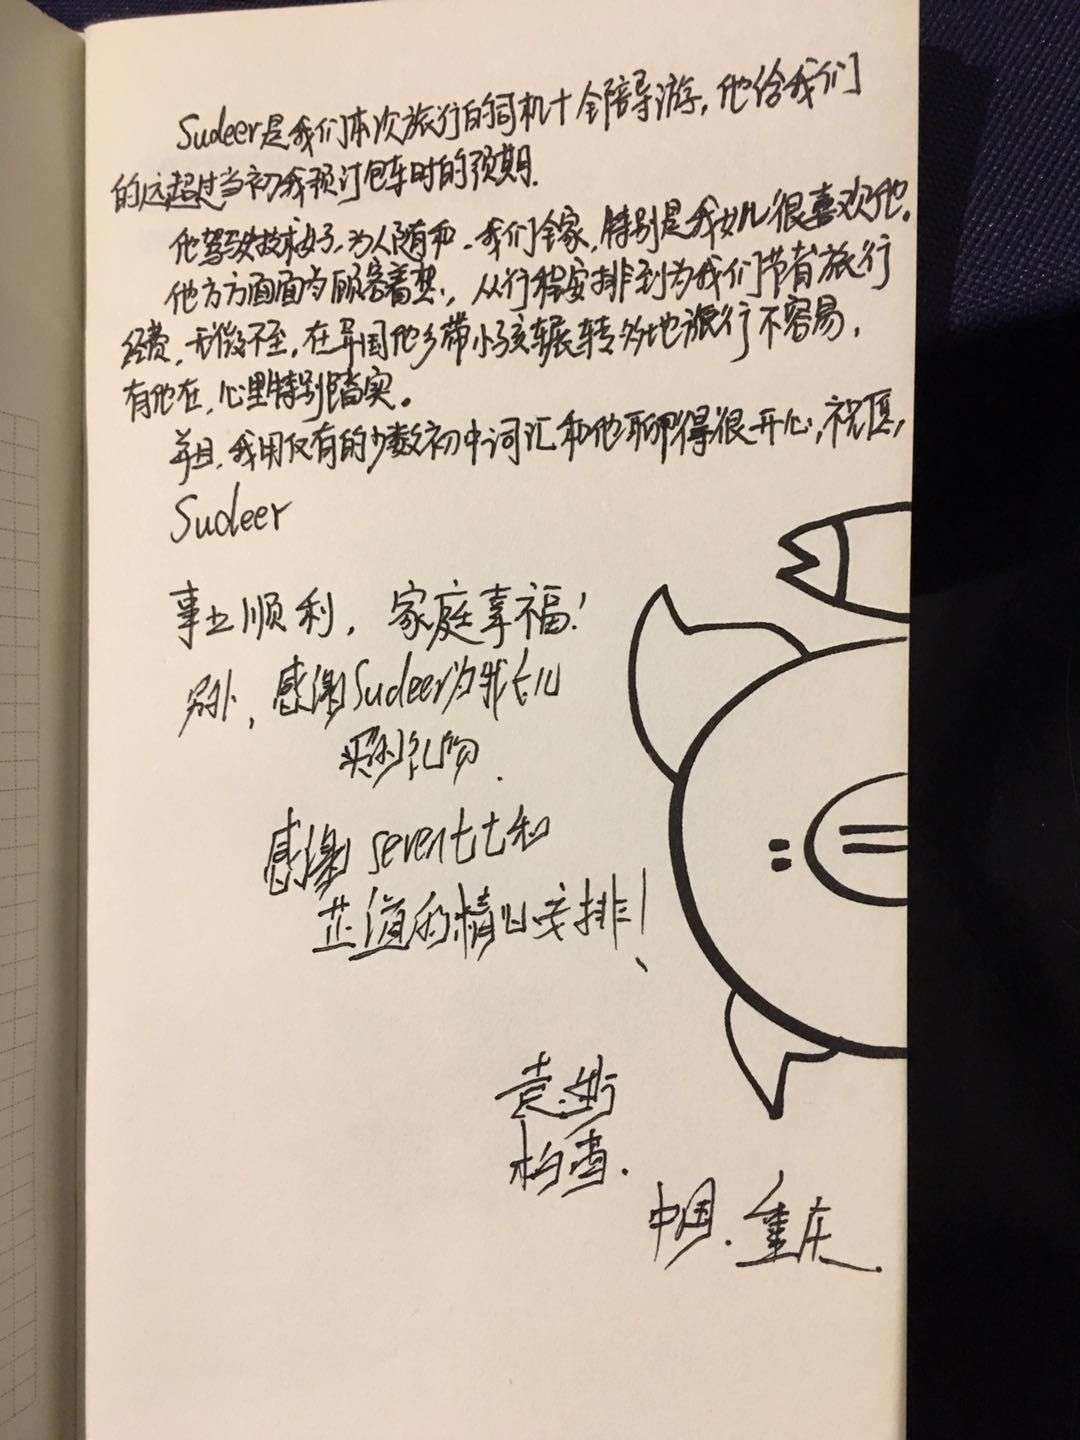 Sudeer是我们本次旅行的司机+全陪导游,他给我们
的远超过当初我预订包车时的预期.
他驾驶技术好,为人随和,我们全家,特别是我女儿很喜欢他。
他方方面面为顾客着想,从行程安排到为我们节省旅行
经费,无微不至,在异国他乡带小孩辗转多地旅行不容易,
有他在,心里特别踏实。
并且,我用仅有的少数初中词汇和他聊得很开心,祝愿,
Sudeer
事业顺利,家庭幸福!
另外,感谢Sudeer为我女儿
买的礼物.
感谢seven七七和
芷道的精心安排!
中国.重庆.